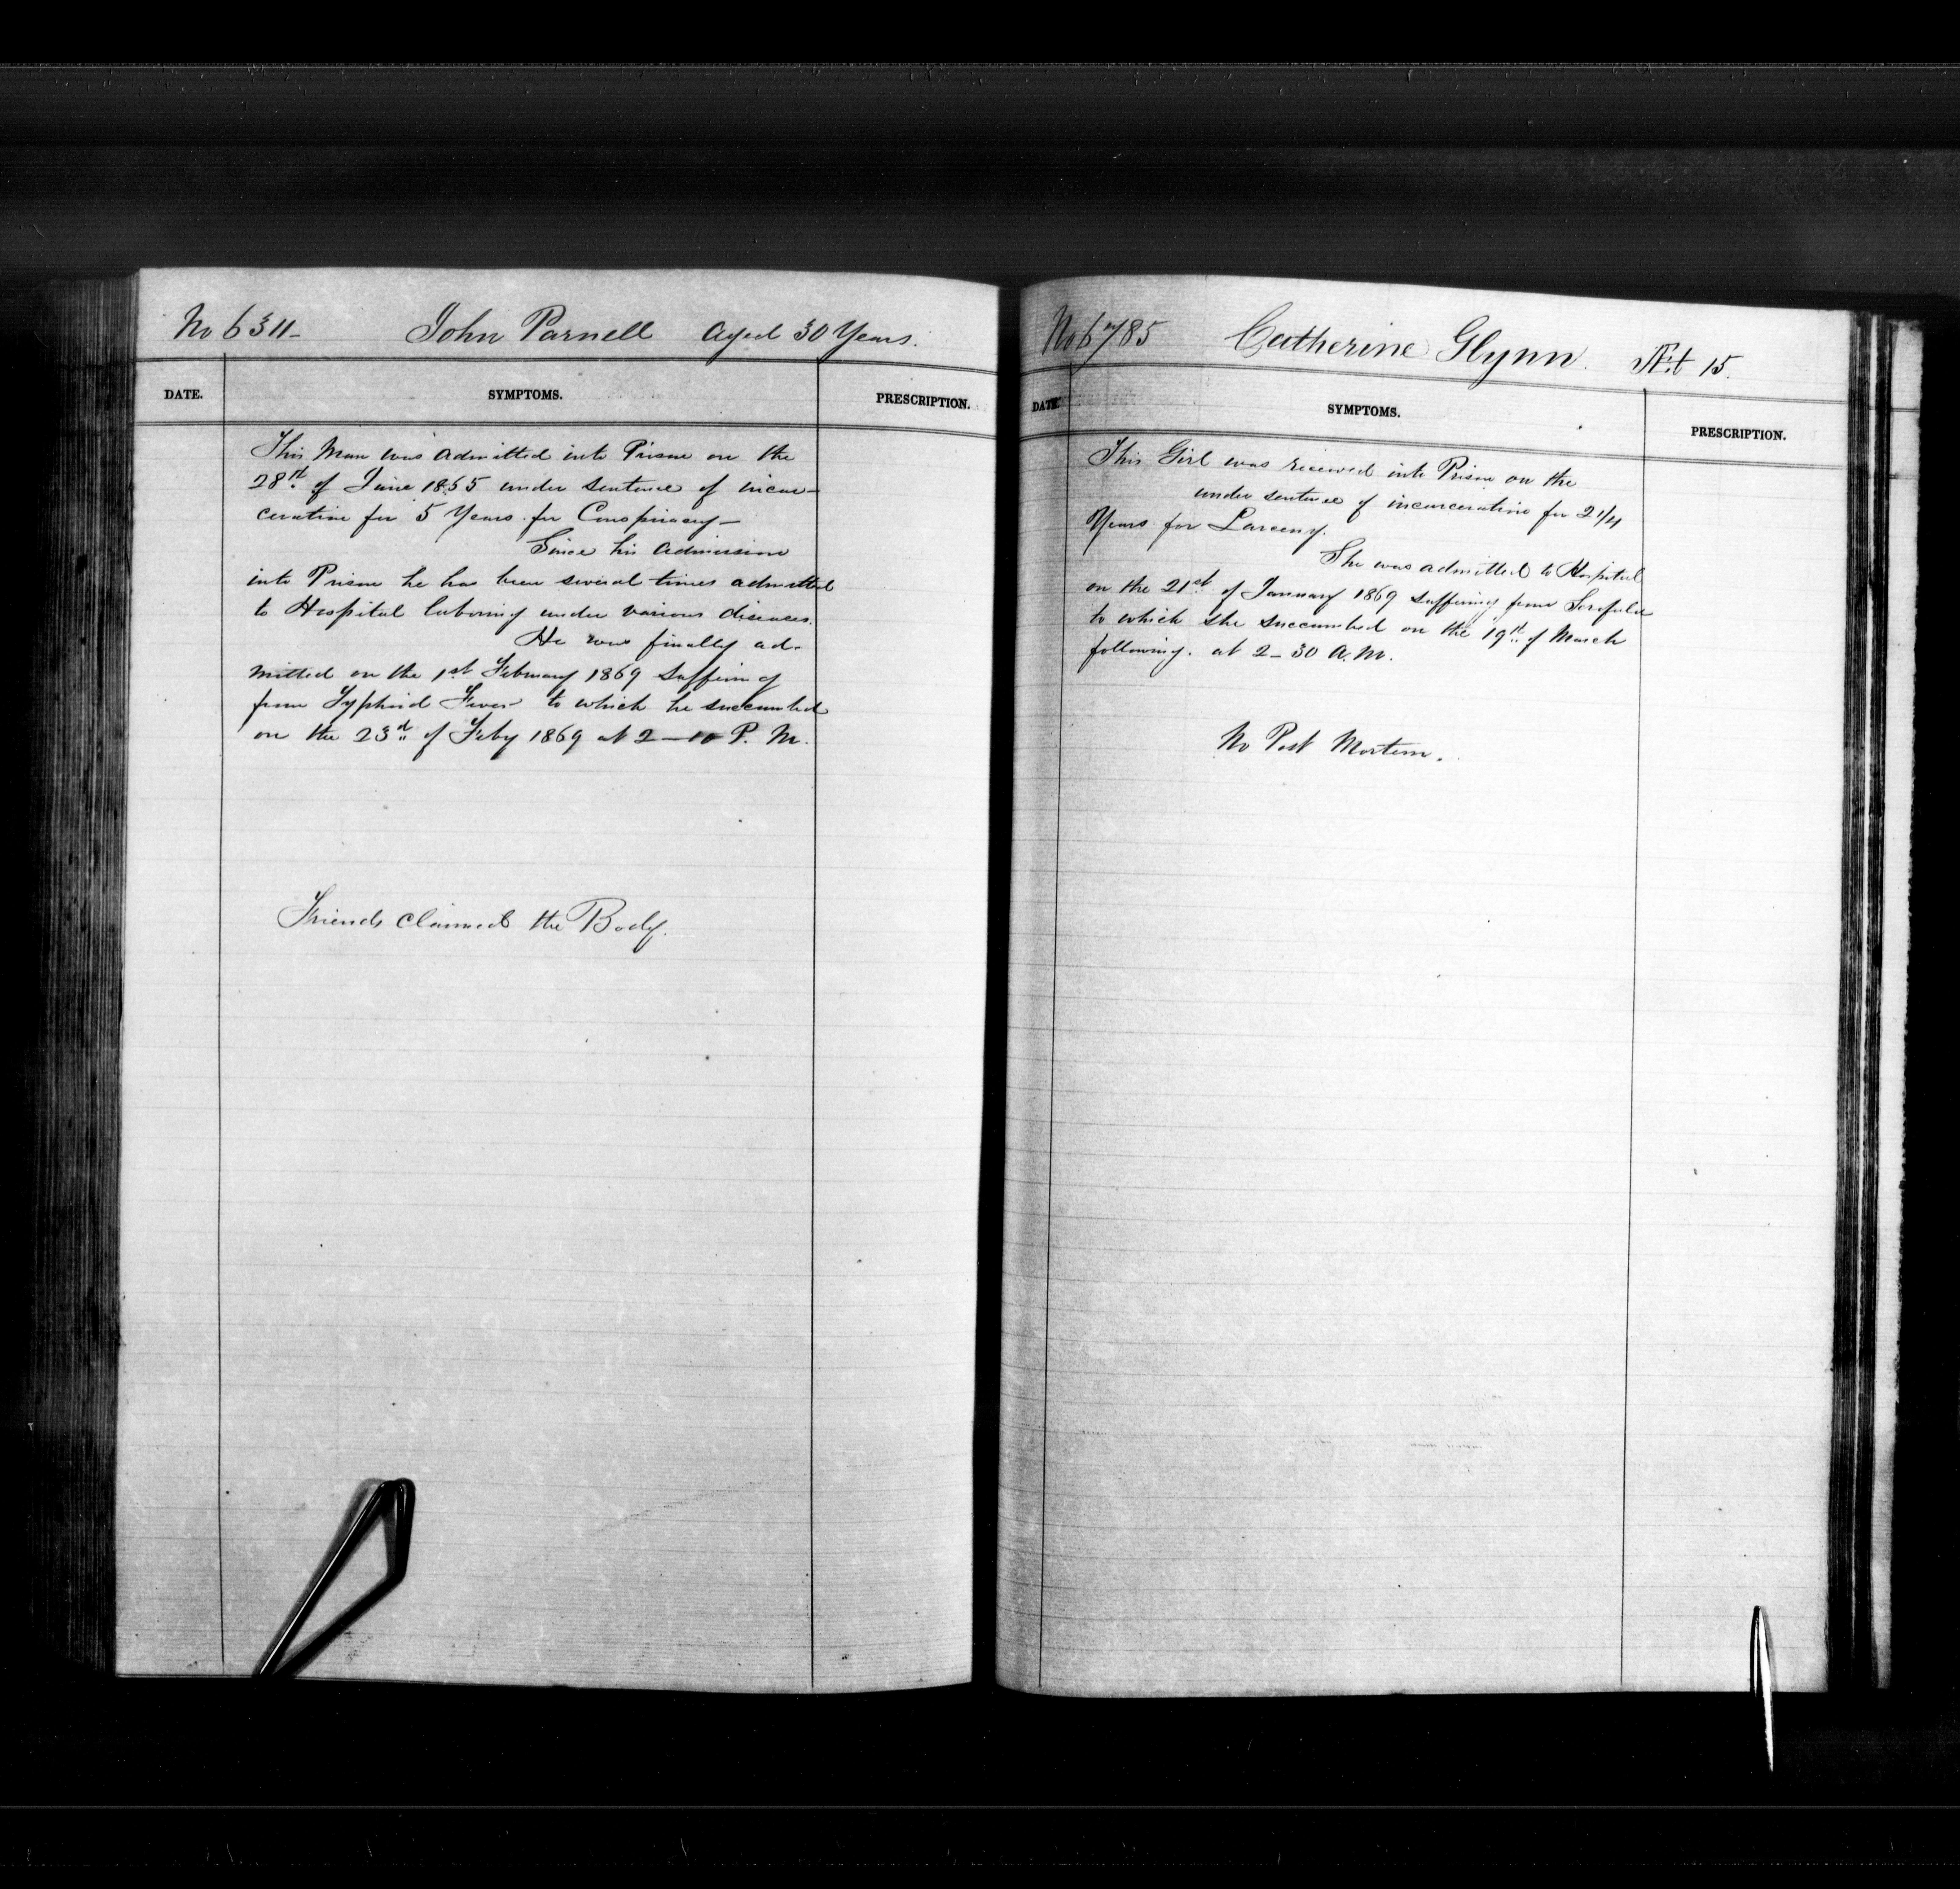 No 6311- John Parnell Aged 30 Years.
DATE. SYMPTOMS. PRESCRIPTION.
This Man was admitted into Prison on the
28th of June 1865 under sentence of incar-
ceration for 5 Years for Conspiracy—
Since his admission
into Prison he has been several times admitted
to Hospital laboring under various diseases.
He was finally ad-
mitted on the 1st February 1869 suffering
from Typhoid Fever to which he succumbed
on the 23d of Feby 1869 at 2—10 P. M.
Friends claimed the Body.
No 6785 Catherine Glynn. Æt 15.
DATE. SYMPTOMS. PRESCRIPTION.
This Girl was received into Prison on the
under sentence of incarceration for 2 1/4
Years for Larceny.
She was admitted to Hospital
on the 21st of January 1869 suffering from Scrofula
to which she succumbed on the 19th of March
following. at 2—30 A. M.
No Post Mortem.